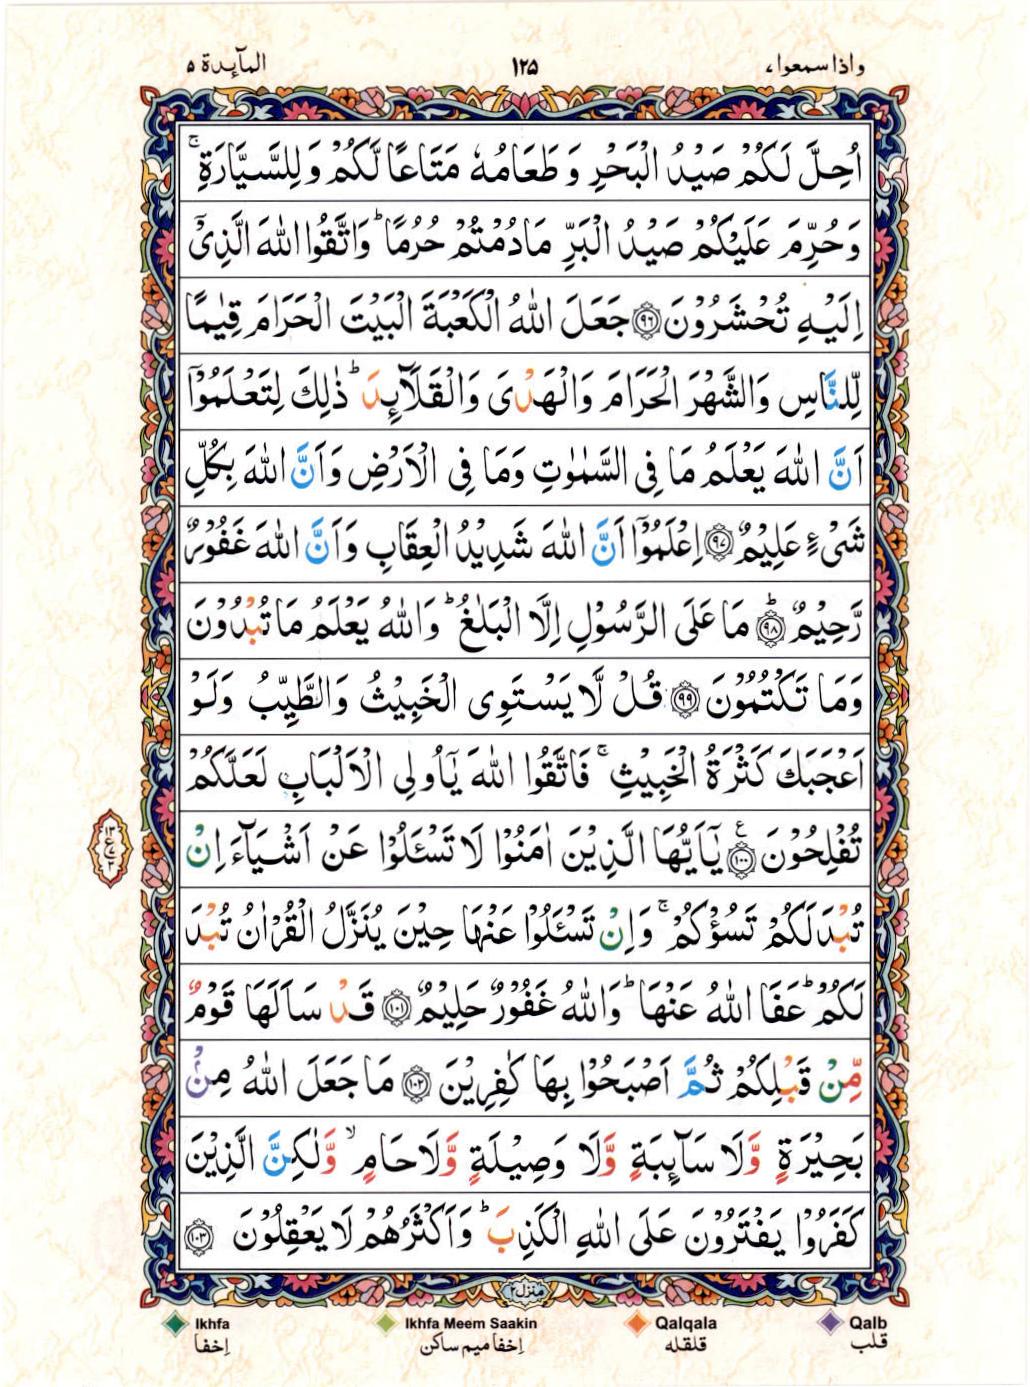 المآئدة ۵
۱۲۵
واذا سمعوا،
اُحِلَّ لَكُمْ صَيْدُ الْبَحْرِ وَ طَعَامُهٗ مَتَاعًا لَّكُمْ وَ لِلسَّيَّارَةِ ۚ
وَ حُرِّمَ عَلَيْكُمْ صَيْدُ الْبَرِّ مَا دُمْتُمْ حُرُمًا ؕ وَاتَّقُوا اللّٰهَ الَّذِىْۤ
اِلَيْهِ تُحْشَرُوْنَ ۝۹۶ جَعَلَ اللّٰهُ الْكَعْبَةَ الْبَيْتَ الْحَرَامَ قِيٰمًا
لِّلنَّاسِ وَالشَّهْرَ الْحَرَامَ وَالْهَدْىَ وَالْقَلَآئِدَ ؕ ذٰلِكَ لِتَعْلَمُوْۤا
اَنَّ اللّٰهَ يَعْلَمُ مَا فِى السَّمٰوٰتِ وَمَا فِى الْاَرْضِ وَاَنَّ اللّٰهَ بِكُلِّ
شَىْءٍ عَلِيْمٌ ۝۹۷ اِعْلَمُوْۤا اَنَّ اللّٰهَ شَدِيْدُ الْعِقَابِ وَاَنَّ اللّٰهَ غَفُوْرٌ
رَّحِيْمٌ ؕ۝۹۸ مَا عَلَى الرَّسُوْلِ اِلَّا الْبَلٰغُ ؕ وَاللّٰهُ يَعْلَمُ مَا تُبْدُوْنَ
وَمَا تَكْتُمُوْنَ ۝۹۹ قُلْ لَّا يَسْتَوِى الْخَبِيْثُ وَالطَّيِّبُ وَلَوْ
اَعْجَبَكَ كَثْرَةُ الْخَبِيْثِ ۚ فَاتَّقُوا اللّٰهَ يٰۤاُولِى الْاَلْبَابِ لَعَلَّكُمْ
تُفْلِحُوْنَ ۝۱۰۰ ع يٰۤاَيُّهَا الَّذِيْنَ اٰمَنُوْا لَا تَسْـَٔلُوْا عَنْ اَشْيَآءَ اِنْ
تُبْدَ لَكُمْ تَسُؤْكُمْ ۚ وَاِنْ تَسْـَٔلُوْا عَنْهَا حِيْنَ يُنَزَّلُ الْقُرْاٰنُ تُبْدَ
لَكُمْ ؕ عَفَا اللّٰهُ عَنْهَا ؕ وَاللّٰهُ غَفُوْرٌ حَلِيْمٌ ۝۱۰۱ قَدْ سَاَلَهَا قَوْمٌ
مِّنْ قَبْلِكُمْ ثُمَّ اَصْبَحُوْا بِهَا كٰفِرِيْنَ ۝۱۰۲ مَا جَعَلَ اللّٰهُ مِنْۢ
بَحِيْرَةٍ وَّلَا سَآئِبَةٍ وَّلَا وَصِيْلَةٍ وَّلَا حَامٍ ۙ وَّلٰكِنَّ الَّذِيْنَ
كَفَرُوْا يَفْتَرُوْنَ عَلَى اللّٰهِ الْكَذِبَ ؕ وَاَكْثَرُهُمْ لَا يَعْقِلُوْنَ ۝۱۰۳
منزل ۲
Ikhfa
Ikhfa Meem Saakin
Qalqala
Qalb
اِخفا
اِخفا میم ساکن
قلقله
قلب